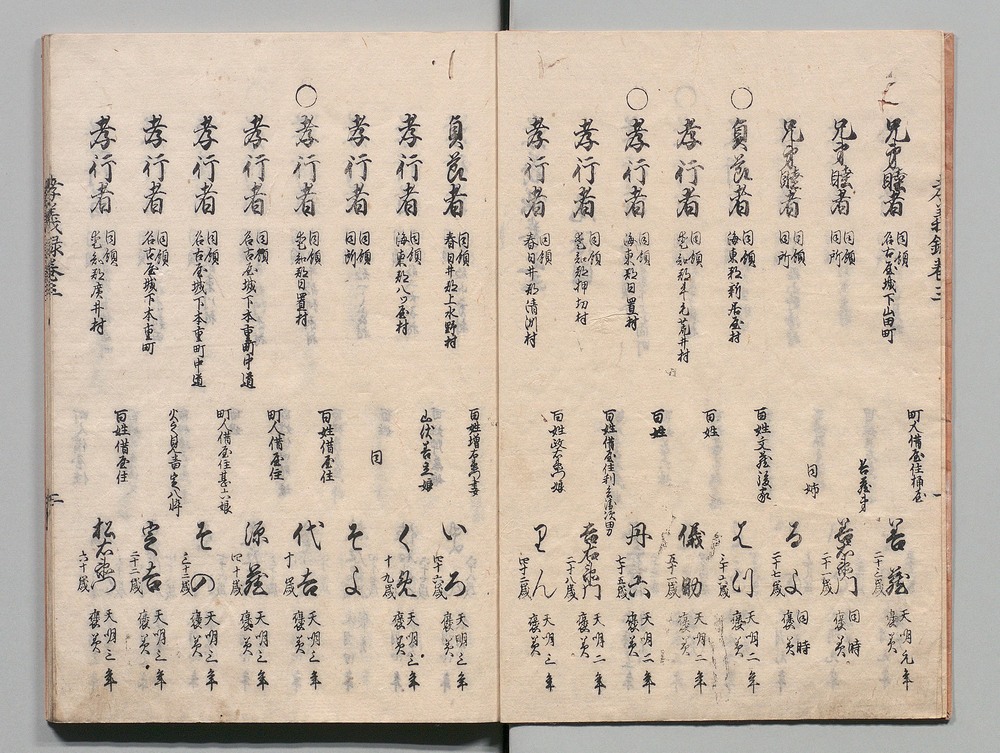 孝義録巻三
兄弟睦者 同領 名古屋城下山田町 町人借屋住桶屋 善蔵 二十三歳 天明元年 褒美
兄弟睦者 同領 同所 善蔵弟 善右衛門 二十一歳 同時 褒美
兄弟睦者 同領 同所 同姉 るよ 二十七歳 同時 褒美
○貞節者 同領 海東郡新居屋村 百姓文蔵後家 天明二年 褒美
孝行者 同領 百姓 儀助 五十一歳 天明二年 褒美
○孝行者 同領 海東郡日置村 百姓 丹六 七十五歳 天明二年 褒美
孝行者 同領 愛知郡押切村 百姓借屋住利兵衛次男 吉右衛門 二十八歳 天明二年 褒美
孝行者 同領 春日井郡清洲村 百姓政右衛門娘 りん 四十二歳 天明二年 褒美
貞節者 同領 春日井郡上水野村 百姓増右衛門妻 いろ 四十六歳 天明三年 褒美
孝行者 同領 海東郡八ツ屋村 山伏 娘 くめ 十九歳 天明三年 褒美
孝行者 同領 同所 同 そよ 天明三年 褒美
○孝行者 同領 愛知郡日置村 百姓借屋住 代吉 十歳 天明三年 褒美
孝行者 同領 名古屋城下本重町中道 町人借屋住 源蔵 四十歳 天明三年 褒美
孝行者 同領 名古屋城下本重町中道 町人借屋住甚六娘 その 三十三歳 天明三年 褒美
孝行者 同領 名古屋城下本重町 火之見番定八忰 定吉 二十二歳 天明三年 褒美
孝行者 同領 愛知郡広井村 百姓借屋住 松右衛門 六十歳 天明三年 褒美
孝義録巻三